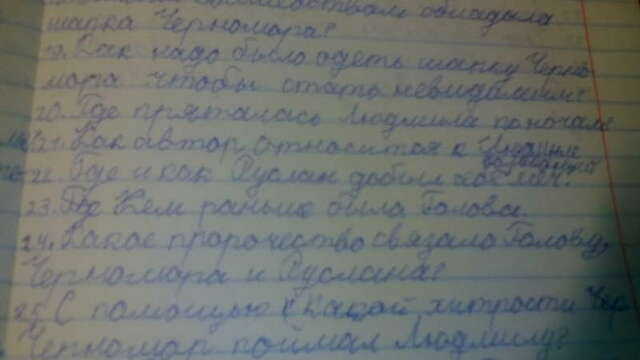 обладала
шапка Черномора?
19. Как надо было одеть шапку Черно
мора чтобы стать невидимым?
20. Где пряталась Людмила по ночам
21. Как автор относится к
22. Где и как Руслан добыл себе меч?
23. Где Кем раньше была Голова.
24. Какое пророчество связало Голову,
Черномора и Руслана?
25. С помощью какой хитрости Чер
Черномор поймал Людмилу?